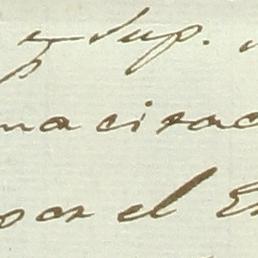 y Sup.
na cirac
por el E